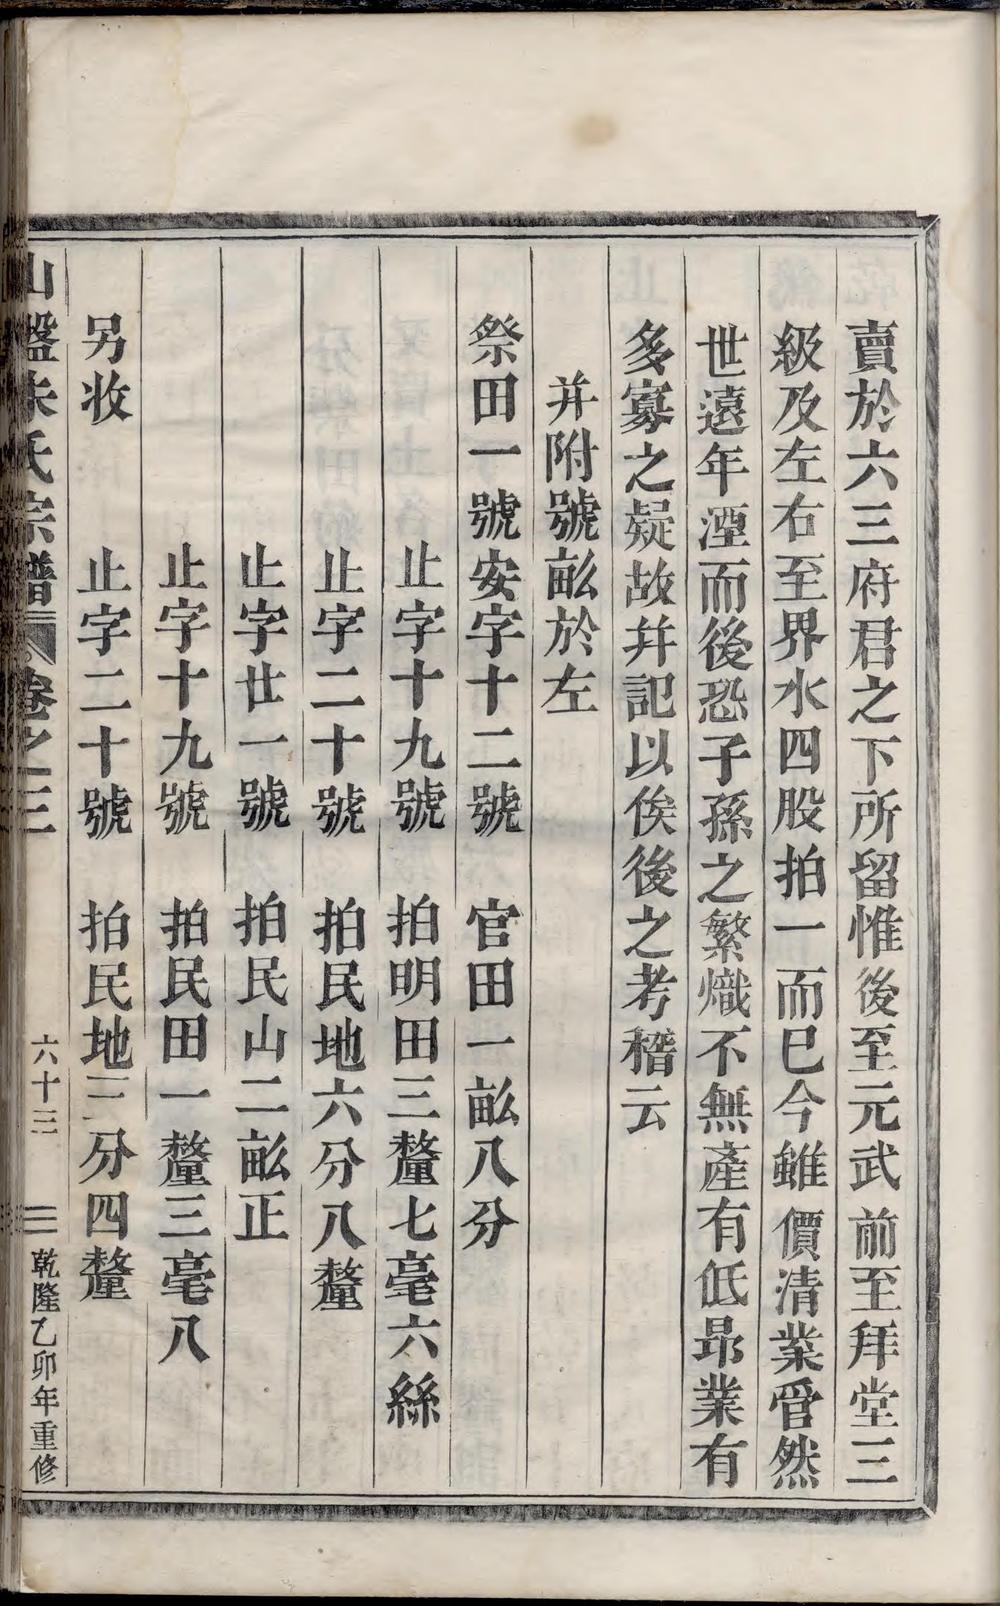 賣於六三府君之下所留惟後至元武前至拜堂三
級及左右至界水四股拍一而巳今雖價清業管然
世遠年湮而後恐子孫之繁熾不無產有低昂業有
多寡之疑故并記以俟後之考稽云
并附號畝於左
祭田一號安字十二號 官田一畝八分
止字十九號 拍明田三釐七毫六絲
止字二十號 拍民地六分八釐
止字廿一號 拍民山二畝正
止字十九號 拍民田一釐三毫八
另收 止字二十號 拍民地三分四釐
山盤朱氏宗譜 卷之三 六十三 乾隆乙卯年重修